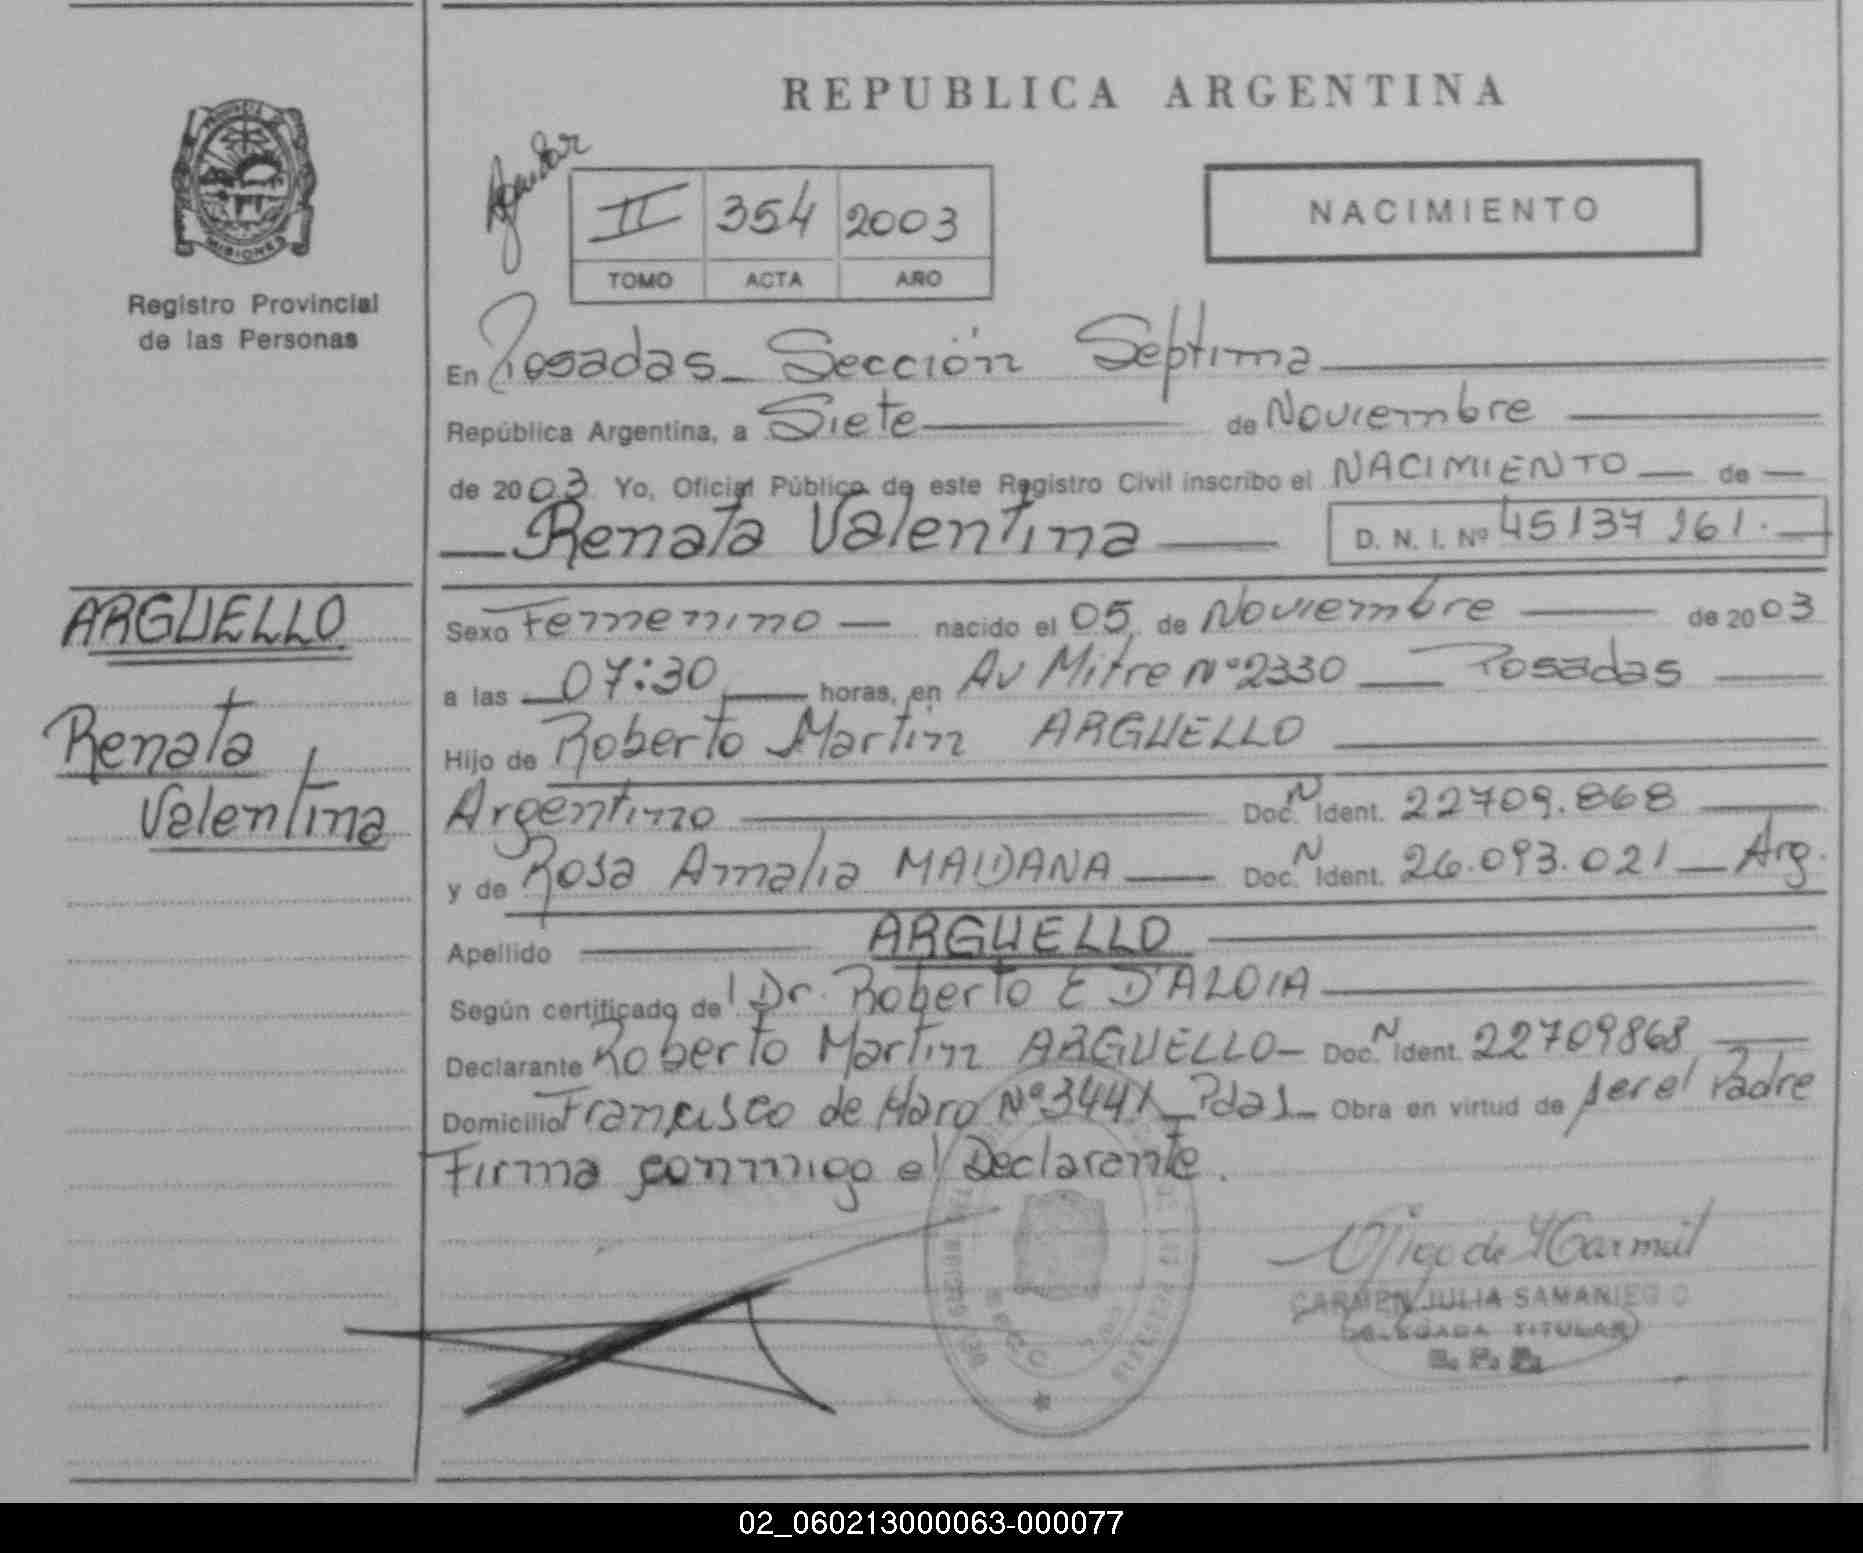 REPUBLICA ARGENTINA
PROVINCIA DE
MISIONES
Registro Provincial
de las Personas
II 354 2003
TOMO ACTA AÑO
NACIMIENTO
En Posadas_ Sección Septima
República Argentina, a Siete de Noviembre
de 2003 Yo, Oficial Público de este Registro Civil inscribo el NACIMIENTO de
Renata Valentina D. N. I. Nº 45137 261.
ARGUELLO
Renata
Valentina
Sexo Femenino nacido el 05 de Noviembre de 2003
a las 07:30 horas, en Av Mitre Nº 2330 Posadas
Hijo de Roberto Martin ARGUELLO
Argentino Doc. N Ident. 22709.868
y de Rosa Amalia MAIDANA Doc. N Ident. 26.093.021 Arg.
Apellido ARGUELLO
Según certificado de Dr. Roberto E D'ALOIA
Declarante Roberto Martin ARGUELLO Doc. N Ident. 22709868
Domicilio Francisco de Haro Nº 3441 Pdas Obra en virtud de ser el Padre
Firma conmigo el Declarante.
CARMEN JULIA SAMANIEGO
DELEGADA TITULAR
R. P. P.
02_060213000063-000077